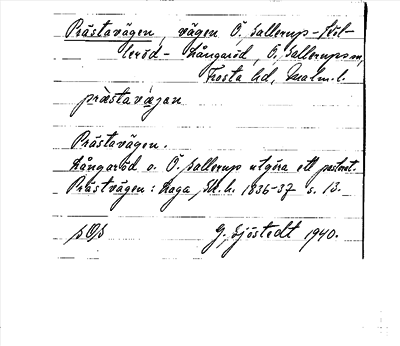 Prästavägen, vägen Ö. Sallerup - Köt-
leröd - Långaröd, Ö. Sallerups sn,
Frosta hd, Malm. l.
præstavægan
Prästavägen.
Långaröd o. Ö. Sallerup utgöra ett pastorat.
Prästvägen: Haga, Sk. h. 1836-37 s. 13.
G. Sjöstedt 1940.